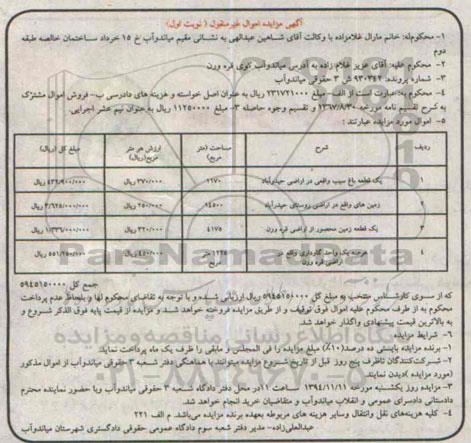 آگهی مزایده اموال غیرمنقول ( نوبت اول)
۱- محکوم‌له: خانم مارال غلامزاده با وکالت آقای شاهین عبدالهی به نشانی مقیم میاندوآب خ ۱۵ خرداد ساختمان خالصه طبقه
دوم
۲- محکوم علیه: آقای عزیز غلام زاده به آدرس میاندوآب کوی قره ورن
۳- شماره پرونده: ۹۳۰۳۴۲ ش ۳ حقوقی میاندوآب
۴- محکوم به: عبارت است از الف- مبلغ ۲۳۱۷۲۱۰۰۰ ریال به عنوان اصل خواسته و هزینه های دادرسی ب- فروش اموال مشترک
به شرح تقسیم نامه مورخه ۱۳۶۷/۸/۳۰ و تقسیم وجوه حاصله ۳- مبلغ ۱۱۲۵۰۰۰۰ ریال به عنوان نیم عشر اجرایی.
۵- اموال مورد مزایده عبارتند :
ردیف شرح مساحت (متر مربع) ارزش هر متر مربع(ریال) مبلغ کل (ریال)
۱ یک قطعه باغ سیب واقعی در اراضی حیدرآباد ۱۱۷۰ ۳۷۰/۰۰۰ ریال ۴۳۲/۹۰۰/۰۰۰ ریال
۲ زمین های واقع در اراضی روستای حیدرآباد ۱۴۵۰۰ ۲۵۰/۰۰۰ ریال ۳/۶۲۵/۰۰۰/۰۰۰ ریال
۳ یک قطعه زمین محصور از اراضی قره ورن ۴۱۷۵ ۳۲۰/۰۰۰ ریال ۱/۳۳۶/۰۰۰/۰۰۰ ریال
۴ عرصه یک واحد گاوداری واقع در اراضی قره ورن ۱۲۲۵ متر مربع ۴۵۰/۰۰۰ ریال ۵۵۱/۲۵۰/۱۰۰ ریال
جمع کل ۵۹۴۵۱۵۰۰۰۰
که از سوی کارشناس منتخب به مبلغ کل ۵۹۴۵۱۵۰۰۰۰ ریال ارزیابی شده و با توجه به تقاضای محکوم لها و بلحاظ عدم پرداخت
محکوم به از طرف محکوم علیه اموال فوق توقیف و از طریق مزایده فروخته خواهد شد و مزایده از قیمت پایه فوق الذکر شروع و
به بالاترین قیمت پیشنهادی واگذار خواهد شد.
۶- شرایط مزایده
۱- برنده مزایده بایستی ده درصد(۱۰٪) مبلغ مزایده را فی المجلس و مابقی را ظرف یک ماه پرداخت نماید.
۲- شرکت‌کنندگان تاظرف پنج روز قبل از تاریخ شروع مزایده میتوانند با هماهنگی دفتر شعبه ۳ حقوقی میاندوآب از اموال مذکور
(مورد مزایده )دیدن نمایند.
۳- مزایده روز یکشنبه مورخه ۱۳۹۴/۱۱/۱۱ ساعت ۱۱ در محل دفتر دادگاه شعبه ۳ حقوقی میاندوآب وبا حضور نماینده محترم
دادستانی دادسرای عمومی و انقلاب میاندوآب و متقاضیان خرید انجام خواهد شد.
۴- کلیه هزینه های نقل وانتقال وسایر هزینه های مربوطه بعهده برنده مزایده می‌باشد. م الف ۲۲۱
عبدالعلی‌زاده- مدیر دفتر شعبه سوم دادگاه عمومی حقوقی دادگستری شهرستان میاندوآب
ParsNamadData